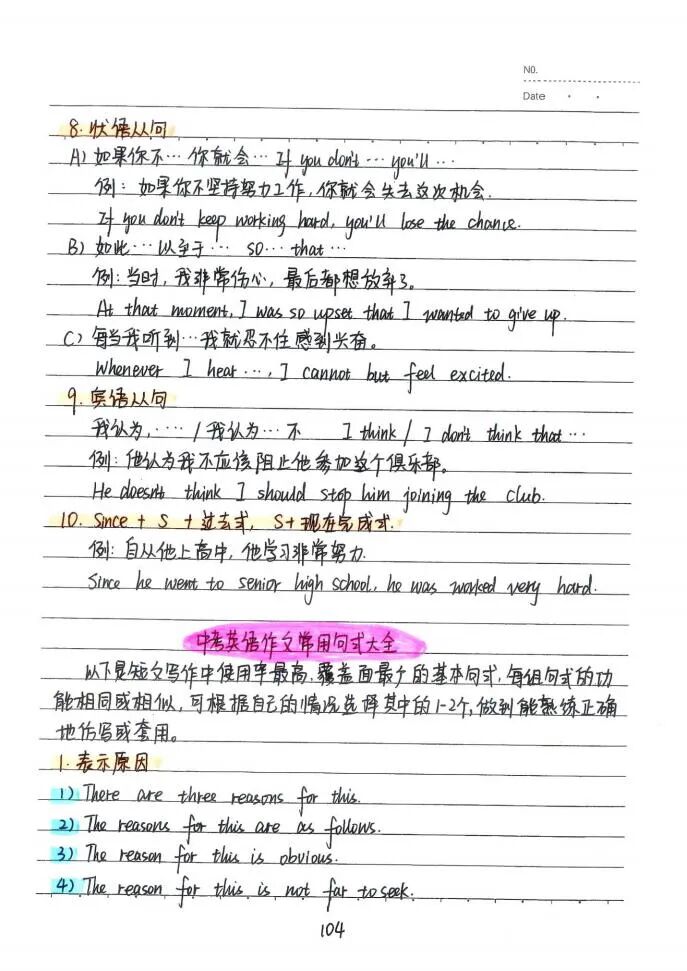 NO.
Date
8. 状语从句
A) 如果你不…你就会… If you don't … you'll …
例: 如果你不坚持努力工作, 你就会失去这次机会.
If you don't keep working hard, you'll lose the chance.
B) 如此…以至于… so… that…
例: 当时, 我非常伤心, 最后都想放弃了。
At that moment, I was so upset that I wanted to give up.
C) 每当我听到…我就忍不住感到兴奋。
Whenever I hear …, I cannot but feel excited.
9. 宾语从句
我认为, …… / 我认为…不 I think / I don't think that …
例: 他认为我不应该阻止他参加这个俱乐部。
He doesn't think I should stop him joining the club.
10. Since + S + 过去式, S + 现在完成式.
例: 自从他上高中, 他学习非常努力.
Since he went to senior high school, he was worked very hard.
中考英语作文常用句式大全
以下是短文写作中使用率最高、覆盖面最广的基本句式, 每组句式的功
能相同或相似, 可根据自己的情况选择其中的1-2个, 做到能熟练正确
地仿写或套用。
1. 表示原因
1) There are three reasons for this.
2) The reasons for this are as follows.
3) The reason for this is obvious.
4) The reason for this is not far to seek.
104